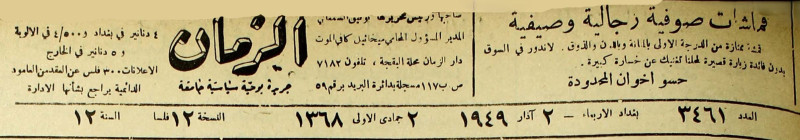 قماشات صوفية رجالية وصيفية
ممتازة من الدرجة الاولى بالمتانة والذوق . لاندور في السوق
بدون فائدة زيارة قصيرة لمحلنا تمنعك عن خسارة كبيرة .
حسو اخوان المحدودة
صاحبها ورئيس تحريرها توفيق السمعاني
المدير المسؤول المحامي ميخائيل كافي الموت
دار الزمان محلة البقجة ، تلفون ٧١٨٢
ص ب ١١٧ مسجلة بدائرة البريد برقم ٥٩
الزمان
جريدة يومية سياسية جامعة
٤ دنانير في بغداد و ٤/٥٠٠ في الالوية
و ٥ دنانير في الخارج
الاعلانات ٣٠٠ فلس عن العقد من العامود
الدائمية يراجع بشأنها الادارة
العدد ٣٤٦١ بغداد الاربعاء - ٢ آذار ١٩٤٩ ٢ جمادى الاولى ١٣٦٨ النسخة ١٢ فلسا السنة ١٢